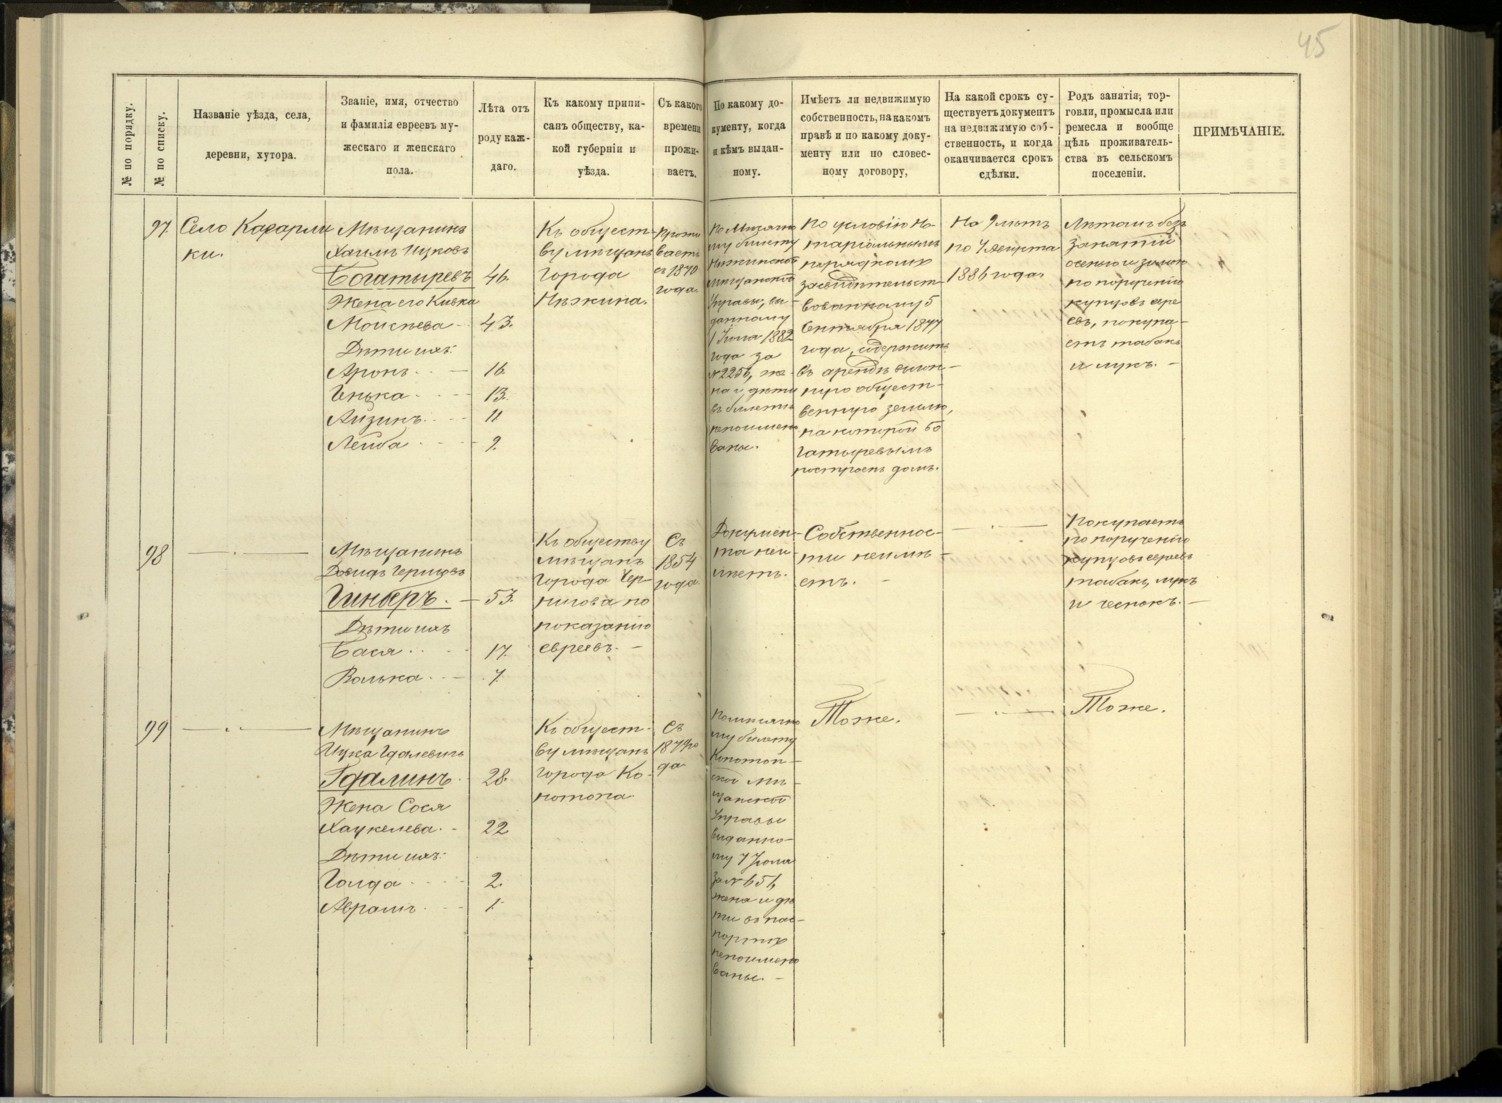 45
№ по порядку.
№ по списку.
Названіе уѣзда, села,
деревни, хутора.
Званіе, имя, отчество
и фамилія евреевъ му-
жескаго и женскаго
пола.
Лѣта отъ
роду каж-
даго.
Къ какому припи-
санъ обществу, ка-
кой губерніи и
уѣзда.
Съ какого
времени
прожи-
ваетъ.
По какому до-
кументу, когда
и кѣмъ выдан-
ному.
Имѣетъ ли недвижимую
собственность, на какомъ
правѣ и по какому доку-
менту или по словес-
ному договору,
На какой срокъ су-
ществуетъ документъ
на недвижимую соб-
ственность, и когда
оканчивается срокъ
сдѣлки.
Родъ занятія, тор-
говли, промысла или
ремесла и вообще
цѣль проживатель-
ства въ сельскомъ
поселеніи.
ПРИМѢЧАНІЕ.
97
Село
ки.
Мѣщанинъ
Хаимъ Ицковъ
Богатыревъ 46.
Жена его Кивка
Моисѣева 43.
Дѣти ихъ:
Аронъ 16.
13.
Айзинъ 11
Лейба 9.
Къ общест-
ву мѣщанъ
города
Нѣжина.
Прожи
ваетъ
съ 1870
года.
му билету
Нѣжинской
мѣщанской
Управы, вы
данному
1 Іюля 1882
года за
№ 2256, же-
на и дѣти
въ билетѣ
непоимено
ваны.
По условію но-
таріальнымъ
порядкомъ
засвидѣтельст-
вованному 5
Сентября 1877
года, содержитъ
въ арендѣ
общест-
венную землю,
на которой Бо
гатыревымъ
построенъ домъ.
На 9 лѣтъ
по 1 Августа
1886 года.
Лѣтомъ безъ
занятій
осенью и зимою
по порученію
купцовъ евре
евъ, покупа-
етъ табакъ
и лукъ.
98
Мѣщанинъ
Довидъ Герцовъ
Гинберъ 53.
Дѣти ихъ
Бася 17.
Волька 7.
Къ обществу
мѣщанъ
города Чер-
нигова по
показанію
евреевъ.
Съ
1854
года
Докумен-
та неи-
мѣетъ.
Собственнос-
ти неимѣ-
етъ.
Покупаетъ
по порученію
купцовъ евреевъ
табакъ, лукъ
и чеснокъ.
99
Мѣщанинъ
Ицка Гдалевичъ
Гдалинъ 28.
Жена Сося
Хацкелева. 22
Дѣти ихъ:
Голда 2.
Абрамъ 1.
Къ общест-
ву мѣщанъ
города Ко-
нотопа.
Съ
да
му билету
Конотоп-
ской мѣ-
щанской
Управы
выданно-
му 7 Іюля
за № 656
жена и дѣ
ти въ пас-
портѣ
непоимено
ваны.
Тоже.
Тоже.